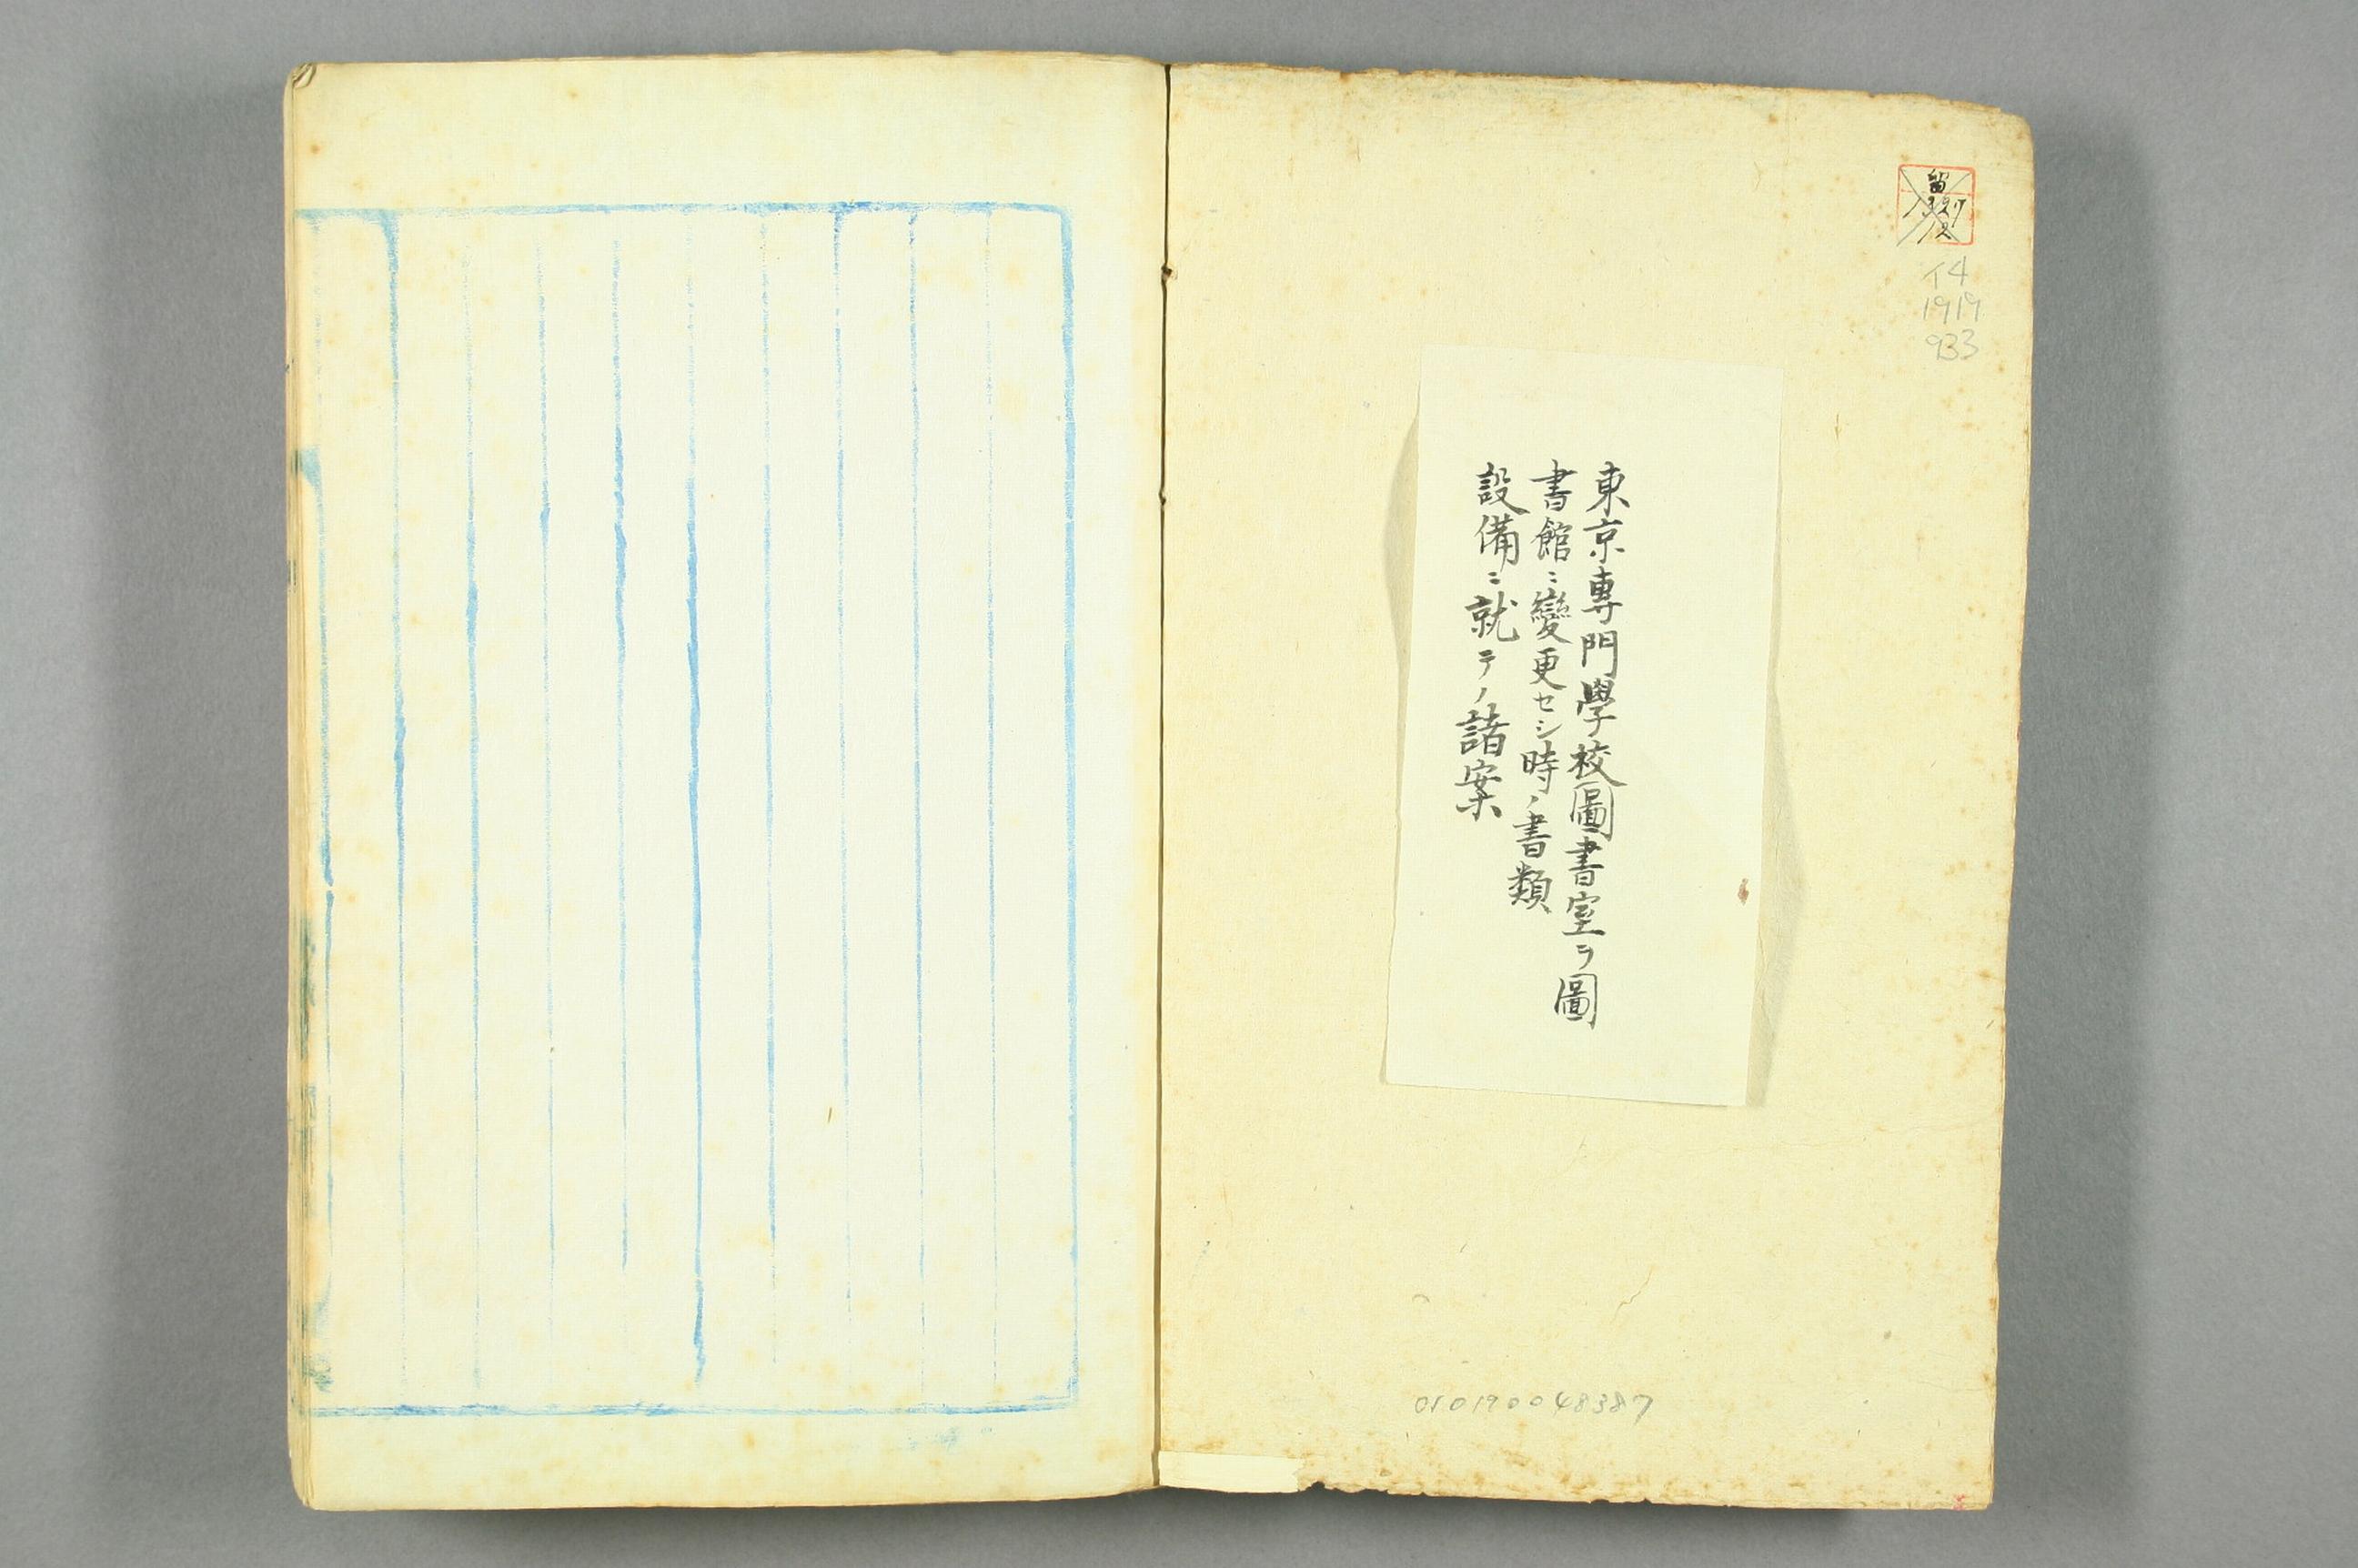 東京專門學校圖書室ヲ圖
書館ニ變更セシ時ノ書類
設備ニ就テノ諸案
イ4
1919
933
010190048387